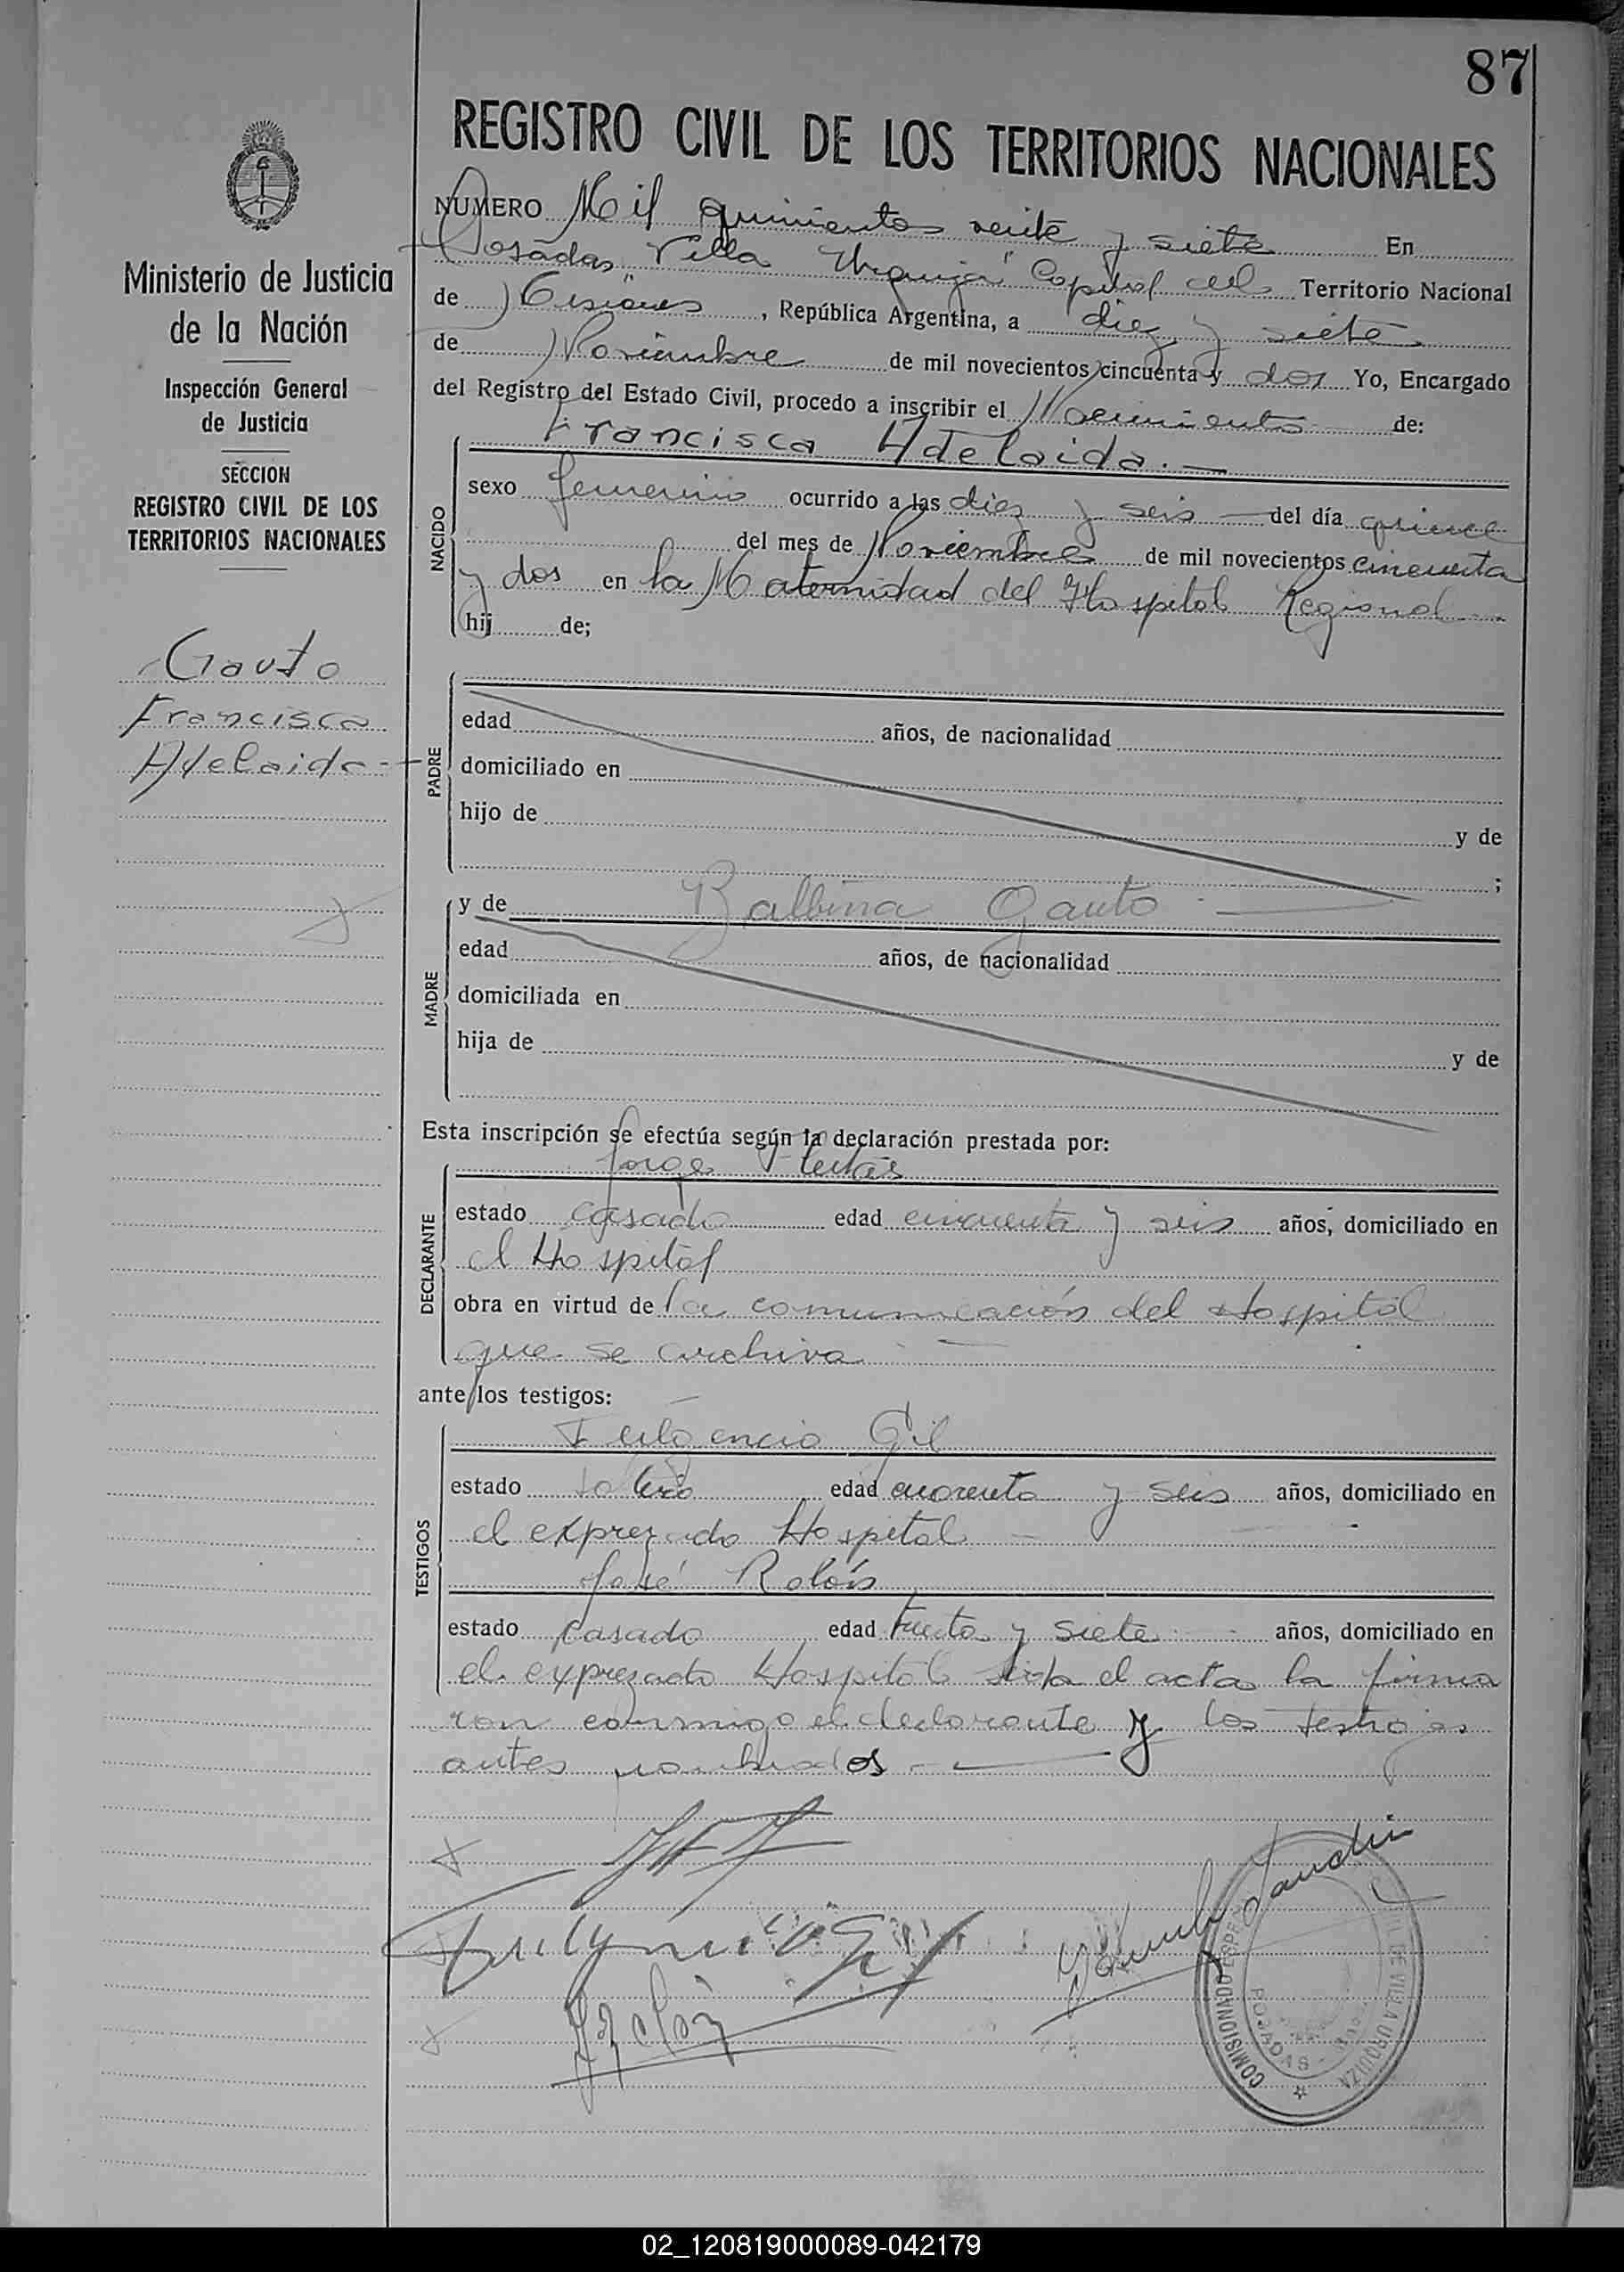 87
REGISTRO CIVIL DE LOS TERRITORIOS NACIONALES
NUMERO Mil quinientos veinte y siete En
Posadas Villa "Urquiza" Capital del Territorio Nacional
de Misiones, República Argentina, a diez y siete
de Noviembre de mil novecientos cincuenta y dos Yo, Encargado
del Registro del Estado Civil, procedo a inscribir el Nacimiento de:
Francisca Adelaida.—
NACIDO
sexo femenino ocurrido a las diez y seis — del día quince
del mes de Noviembre de mil novecientos cincuenta
y dos en la Maternidad del Hospital Regional
hij de;
Ministerio de Justicia
de la Nación
Inspección General
de Justicia
SECCION
REGISTRO CIVIL DE LOS
TERRITORIOS NACIONALES
Gauto
Francisca
Adelaida
PADRE
edad años, de nacionalidad
domiciliado en
hijo de y de
;
MADRE
y de Balbina Gauto
edad años, de nacionalidad
domiciliada en
hija de y de
Esta inscripción se efectúa según la declaración prestada por:
DECLARANTE
Jorge
estado casado edad cincuenta y seis años, domiciliado en
el Hospital
obra en virtud de la comunicación del Hospital
que se archiva
ante los testigos:
TESTIGOS
Fulgencio Gil
estado soltero edad cuarenta y seis años, domiciliado en
el exprezado Hospital
José Rolón
estado casado edad treinta y siete años, domiciliado en
el exprezado Hospital leida el acta la firma
ron conmigo el declarante y los testigos
antes nombrados
COMISIONADO ESPE
CIVIL DE VILLA URQUIZA
POSADAS
02_120819000089-042179